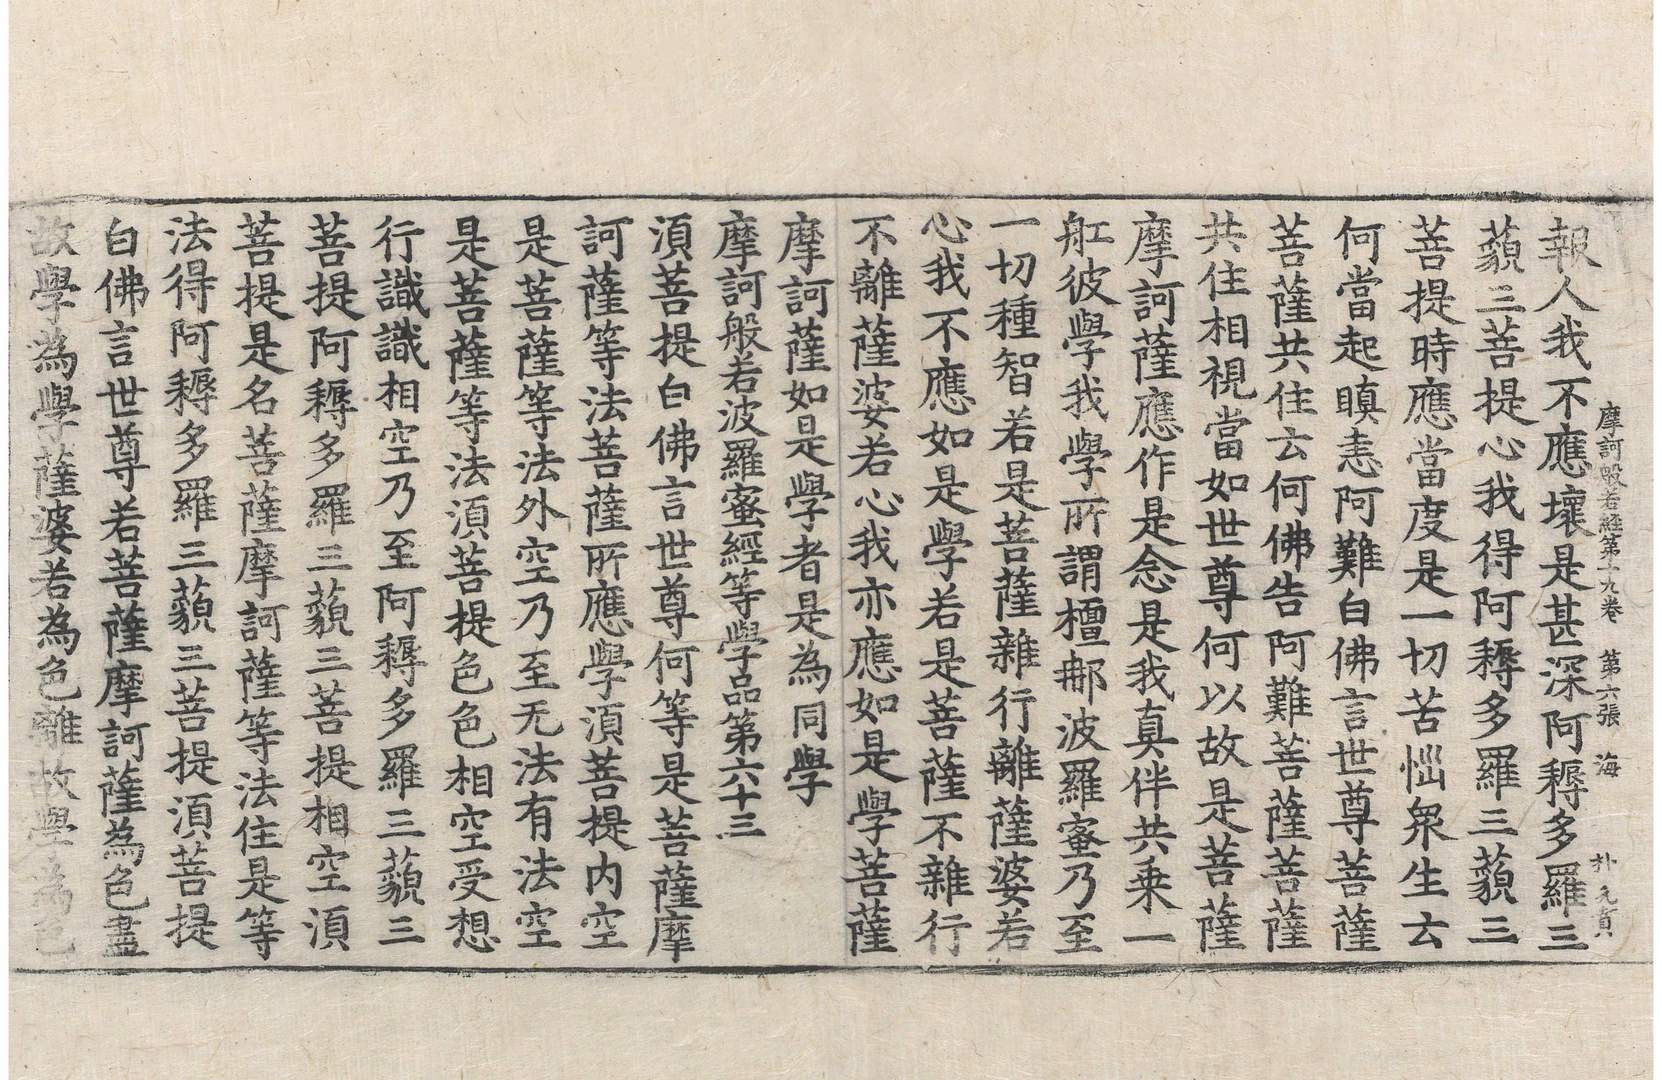 摩訶般若經第十九卷　第六張　海　朴元貞
報人我不應壞是甚深阿耨多羅三
藐三菩提心我得阿耨多羅三藐三
菩提時應當度是一切苦惱衆生云
何當起瞋恚阿難白佛言世尊菩薩
菩薩共住云何佛告阿難菩薩菩薩
共住相視當如世尊何以故是菩薩
摩訶薩應作是念是我真伴共乗一
舡彼學我學所謂檀那波羅蜜乃至
一切種智若是菩薩雜行離薩婆若
心我不應如是學若是菩薩不雜行
不離薩婆若心我亦應如是學菩薩
摩訶薩如是學者是為同學
摩訶般若波羅蜜經等學品第六十三
湏菩提白佛言世尊何等是菩薩摩
訶薩等法菩薩所應學湏菩提内空
是菩薩等法外空乃至无法有法空
是菩薩等法湏菩提色色相空受想
行識識相空乃至阿耨多羅三藐三
菩提阿耨多羅三藐三菩提相空湏
菩提是名菩薩摩訶薩等法住是等
法得阿耨多羅三藐三菩提湏菩提
白佛言世尊若菩薩摩訶薩為色盡
故學為學薩婆若為色離故學為色